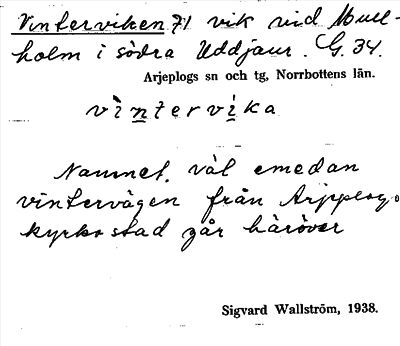 Vinterviken 71 vik vid Mull-
holm i södra Uddjaur. G. 34.
Arjeplogs sn och tg, Norrbottens län.
vìntervìka
Namnet, väl emedan
vintervägen från Arjeplogs
kyrkostad går häröver
Sigvard Wallström, 1938.